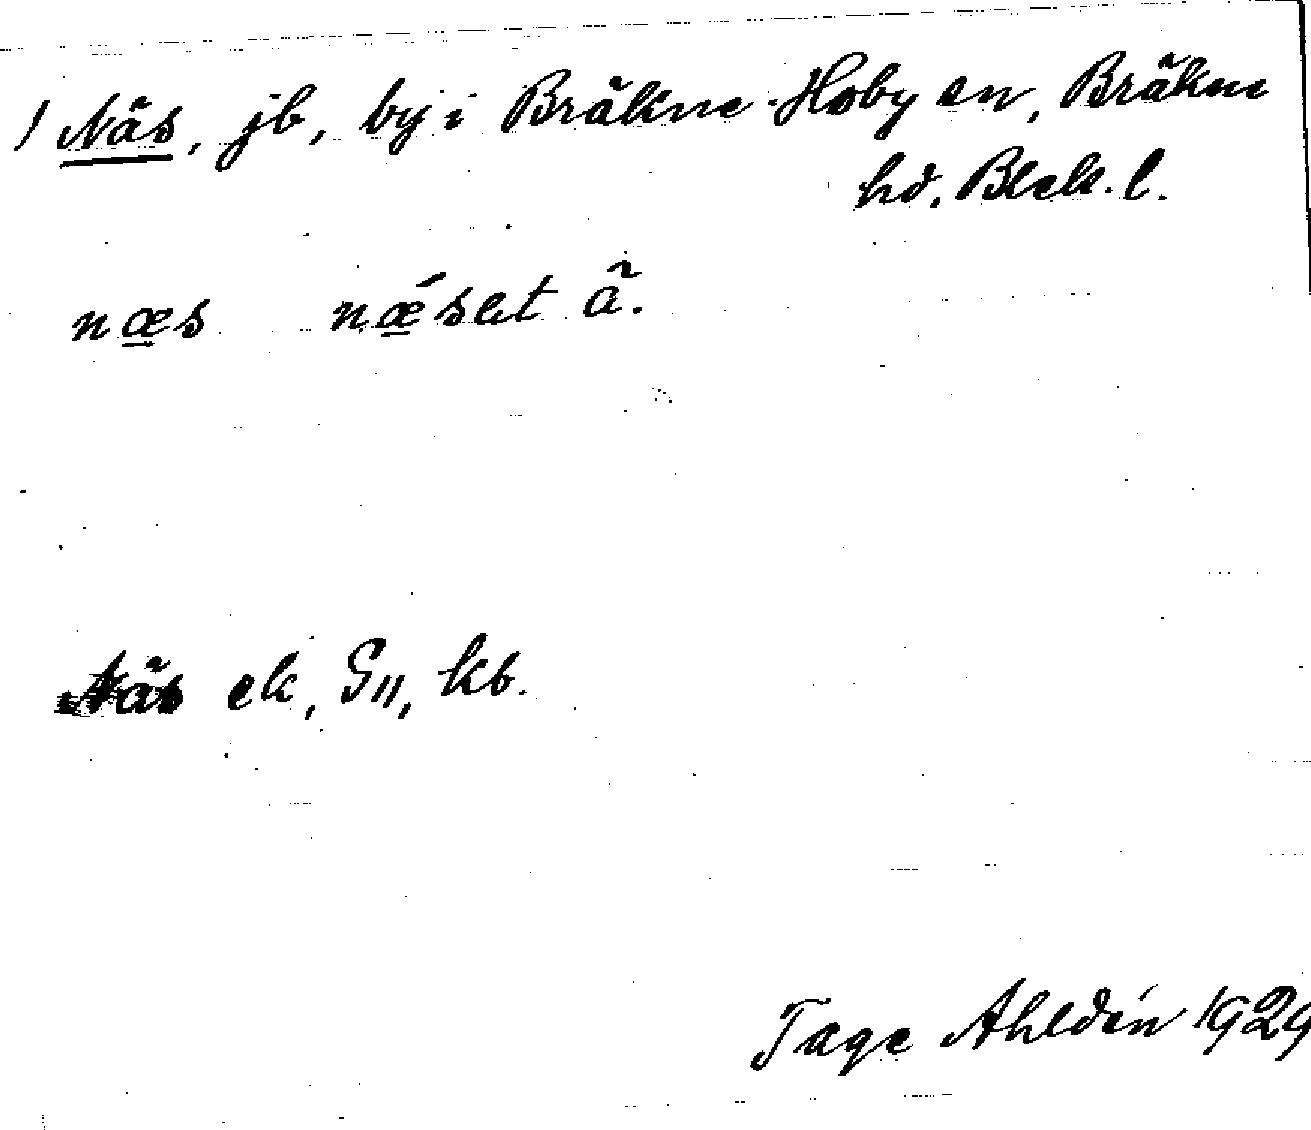 1 Näs, jb, by i Bräkne-Hoby sn, Bräkne
hd. Blek. l.
næs nǽset ã.
Näs ek, G11, kb.
Tage Ahldén 1929